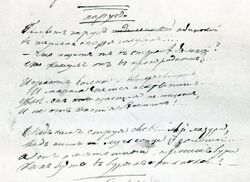 Парус
Белеет парус одинокой
В тумане моря голубом.
Что ищет он в стране далекой?
Что кинул он в краю родном?
Играют волны, ветер свищет,
И мачта гнется и скрыпит;
Увы! он счастия не ищет
И не от счастия бежит!
Под ним струя светлей лазури,
Над ним луч солнца золотой:
А он, мятежный, просит бури,
Как будто в бурях есть покой!